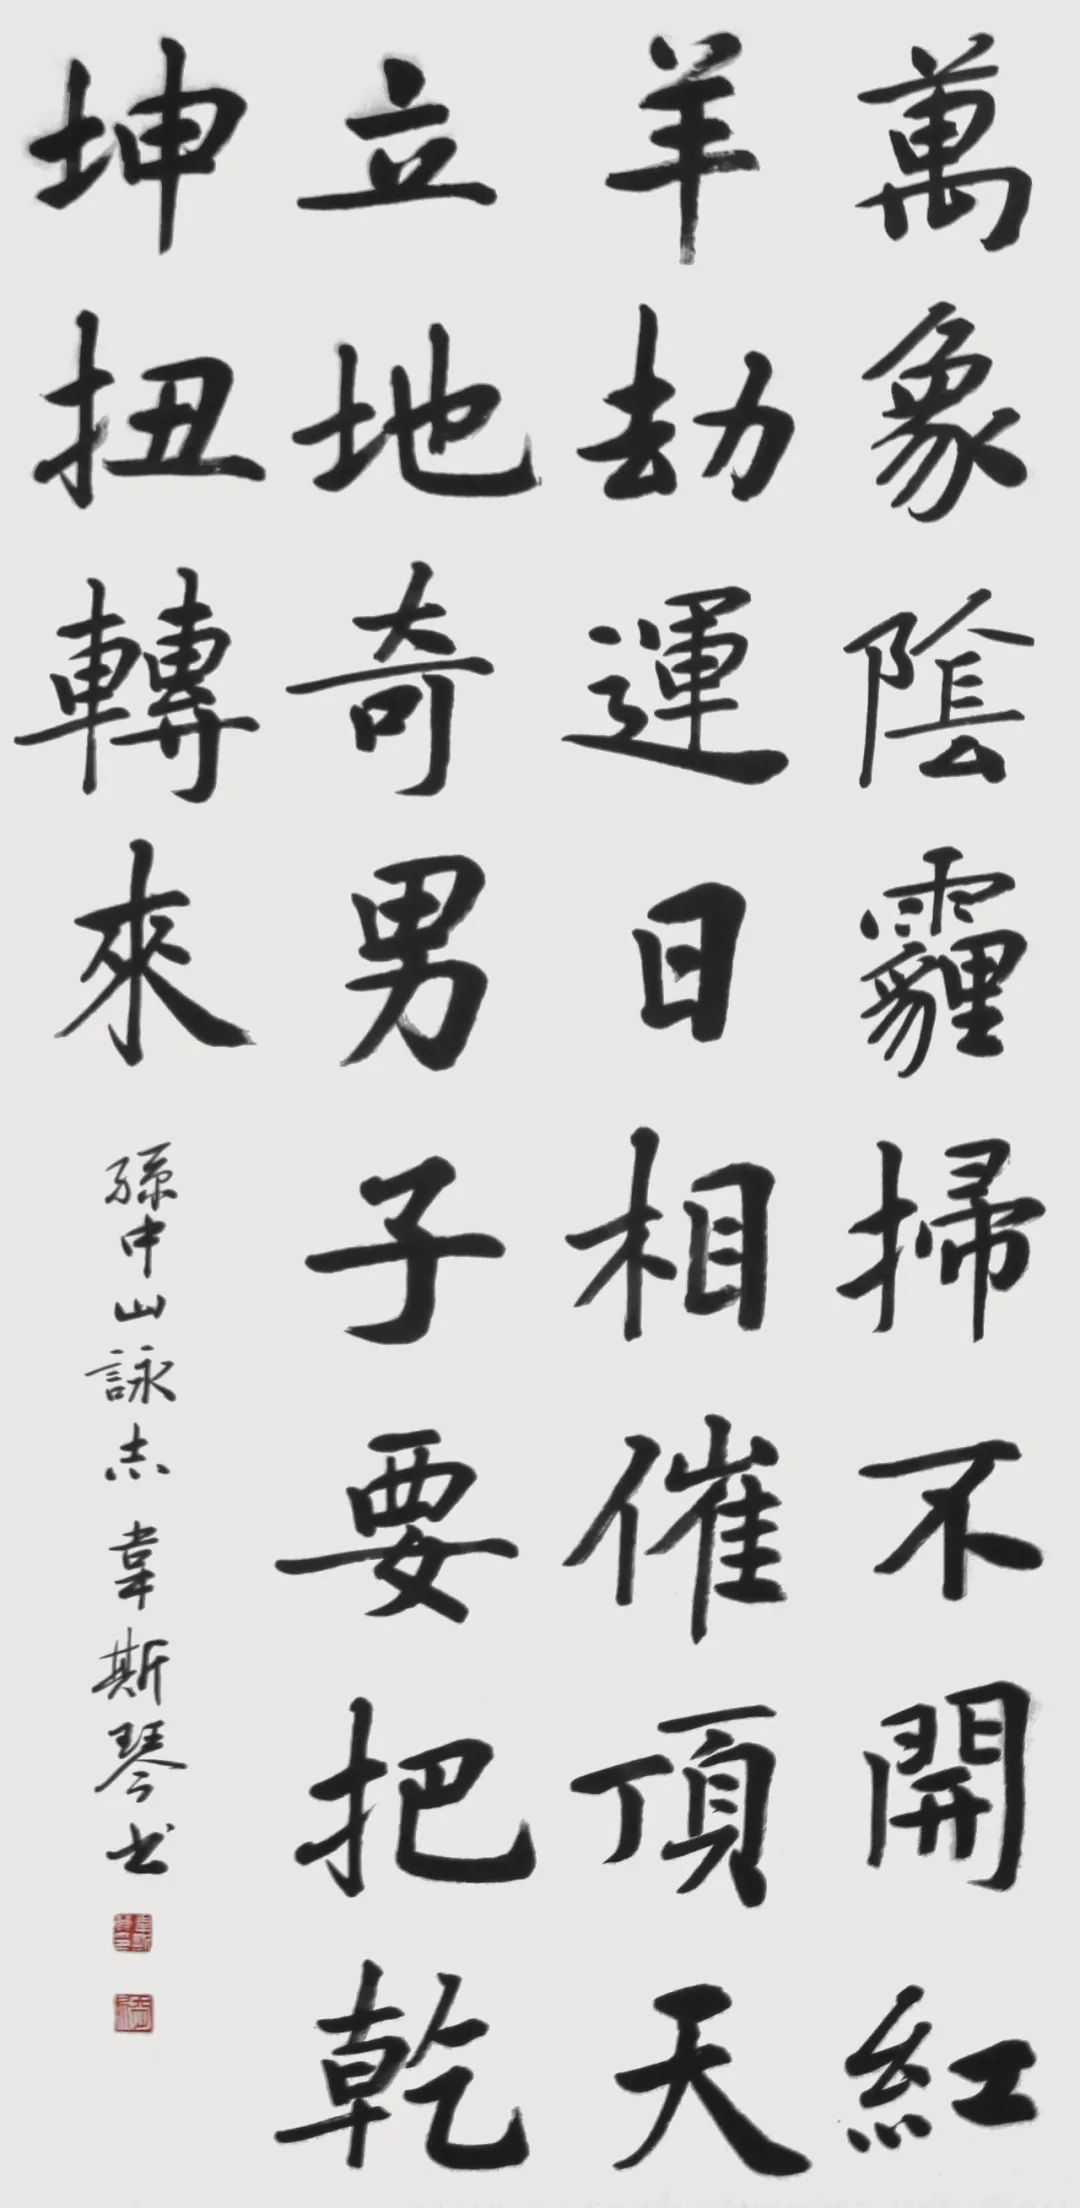 萬象陰霾掃不開紅
羊劫運日相催頂天
立地奇男子要把乾
坤扭轉來
孫中山詠志 韋斯琴书